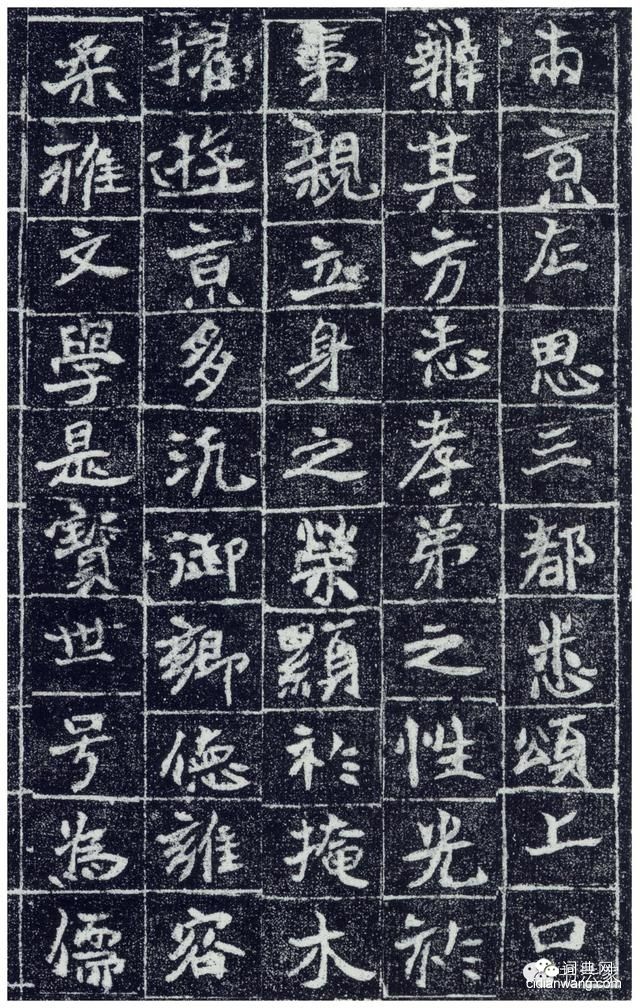 兩京左思三都悉頌上口
辯其方志孝弟之性光於
事親立身之榮顯於掩木
擢遊京多汎御鄉德雍容
柔雅文學是寶世号為儒
词典网
cidianwang.com